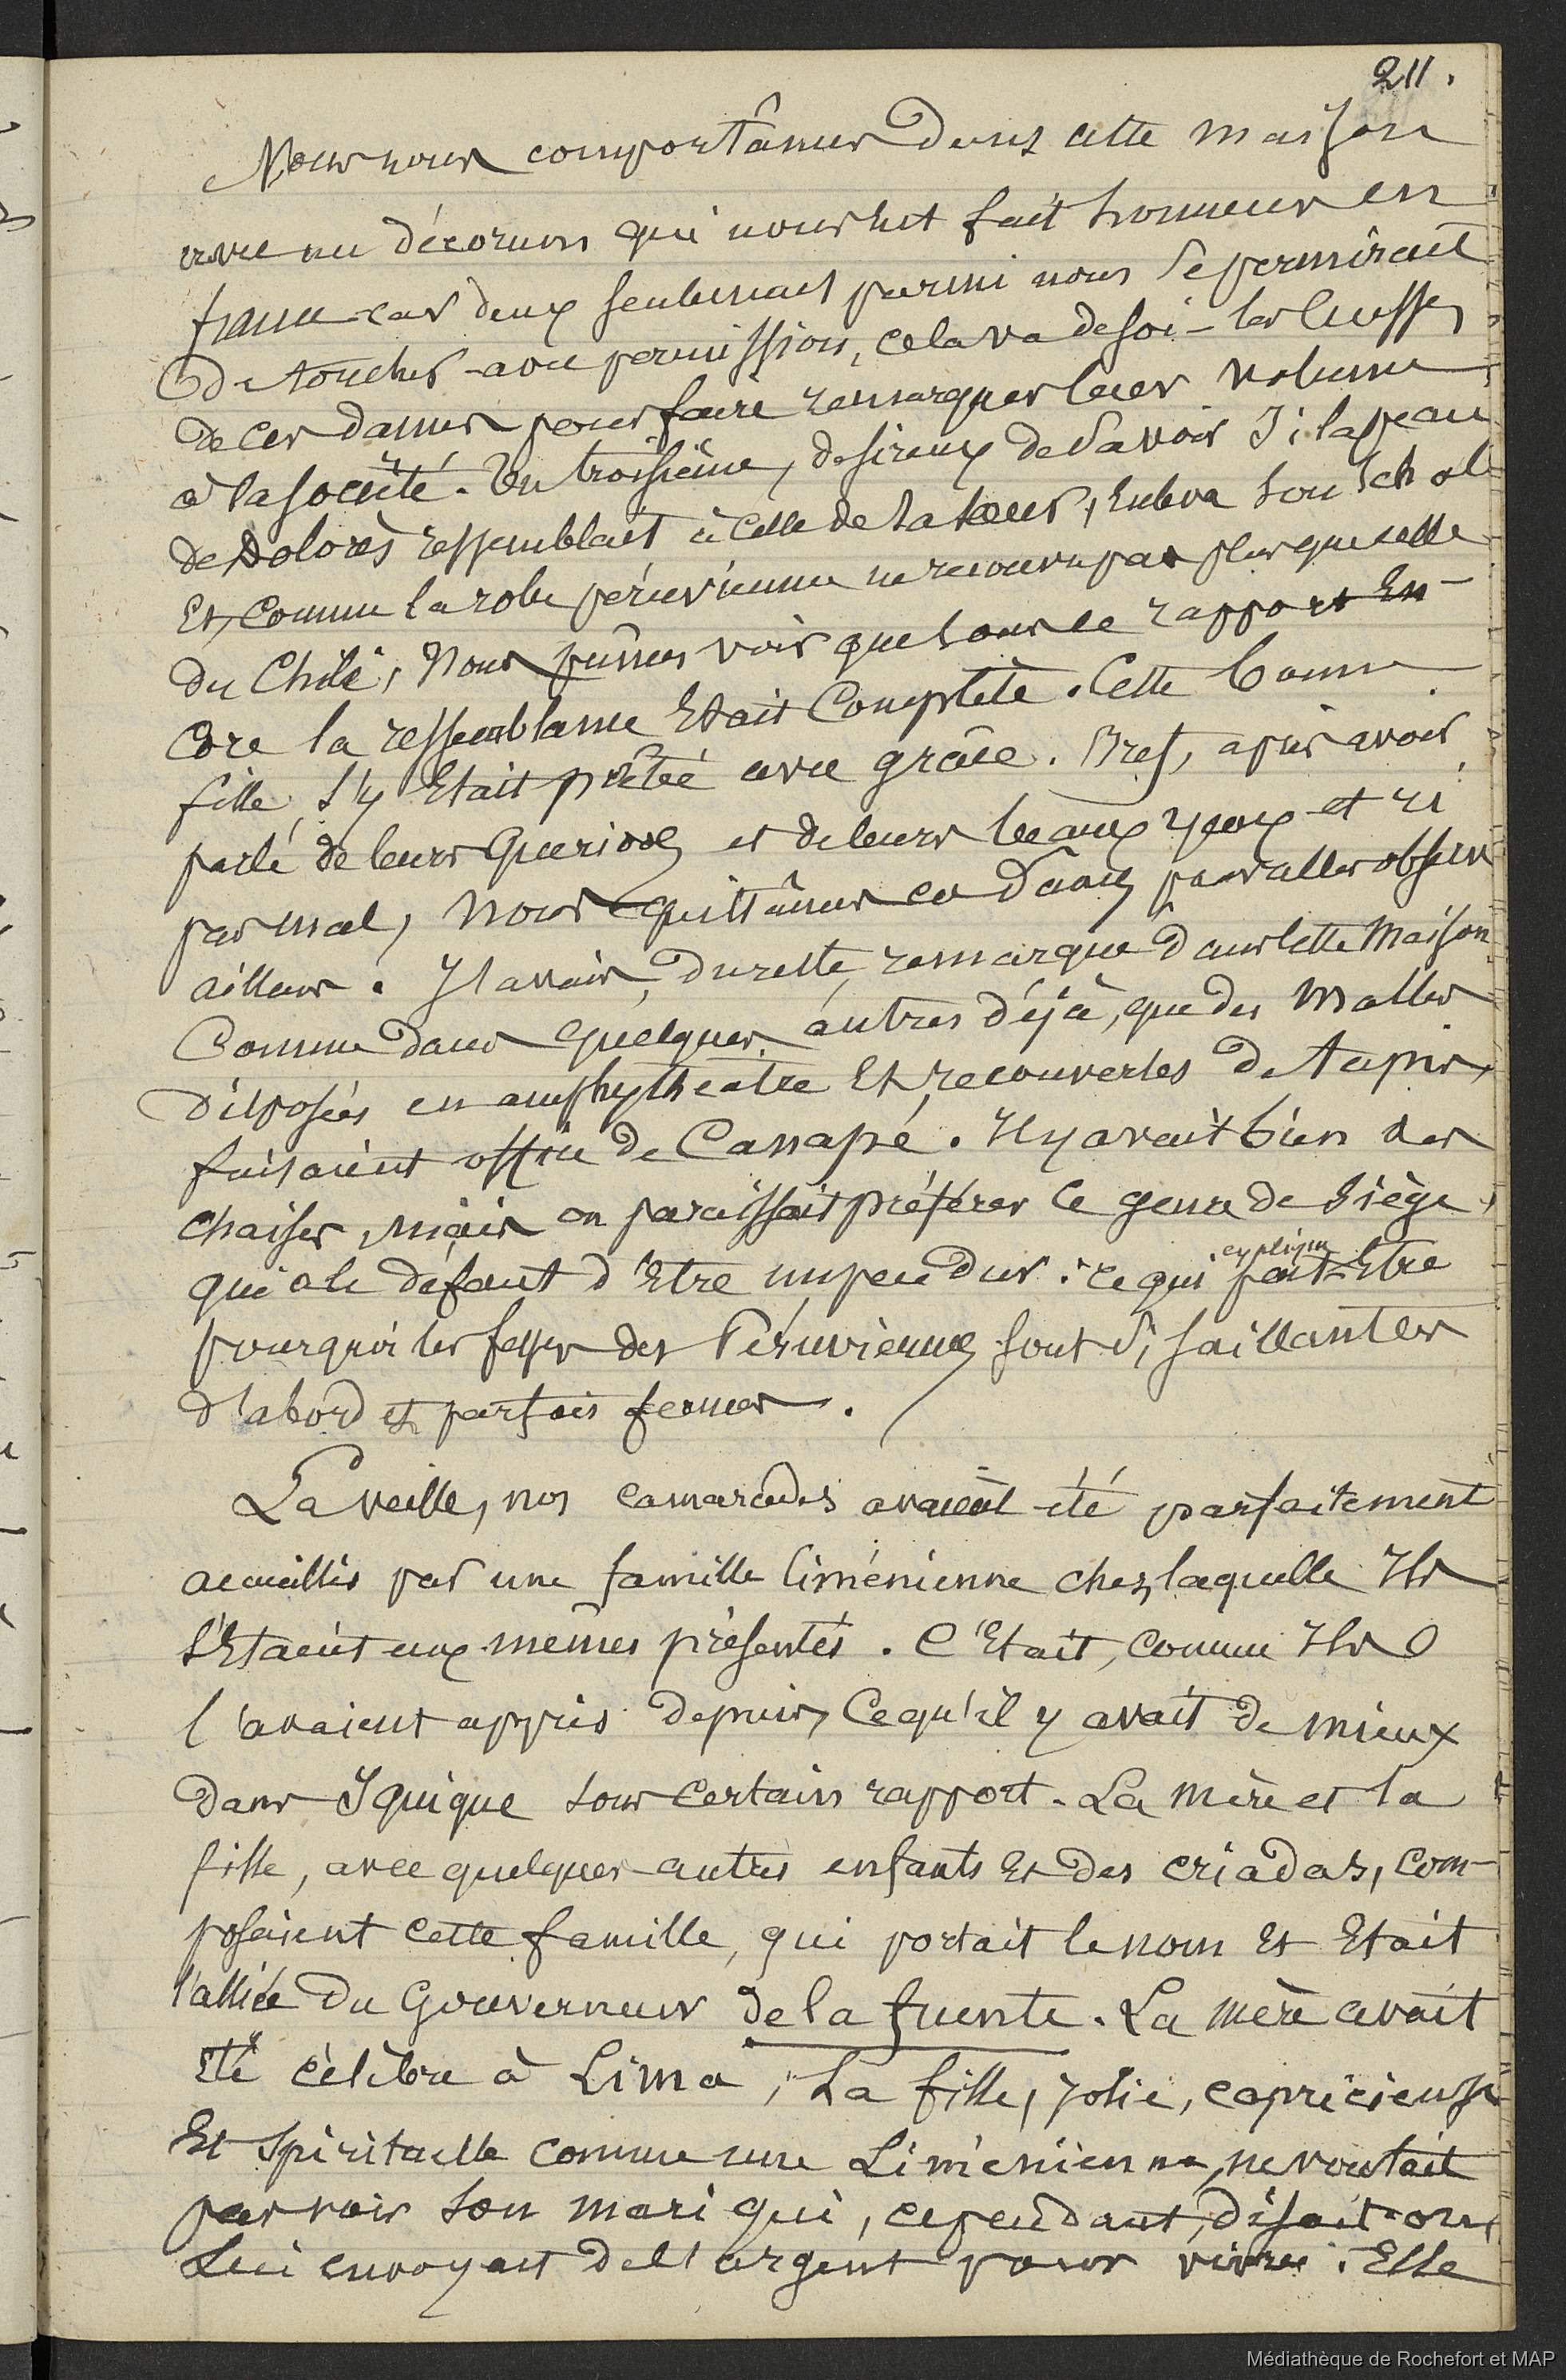 211.
Nous nous comportâmes dans cette maison
avec un décorum qui nous eut fait honneur en
france car deux seulement parmi nous se permirent
de toucher - avec permission, cela va de soi - les cuisses
de ces dames pour faire remarquer leur volume
à la société. Un troisième, desireux de savoir si la peau
de Dolorès ressemblait à celle de la sœur, enleva son schol
Et, comme la robe péruvienne ne recouvre pas plus que celle
du Chili, Nous pûmes voir que sous ce rapport En-
core la ressemblance Etait Complète. Cette bonne
fille, s'y Etait prêtée avec grâce. Bref, après avoir
parlé de leurs Queridos et de leurs beaux yeux et ri
pas mal, Nous quittâmes ces dames pour aller observer
ailleurs. J'avais, du reste, remarqué dans cette Maison
Comme dans quelques autres déjà, que des Malles
disposées en amphythéatre Et recouvertes de tapis,
faisaient office de Canapé. Il y avait bien des
chaises, mais on paraissait préférer ce genre de siège,
qui a le défaut d'Etre un peu dur : ce qui explique peut-Etre
pourquoi les fesses des Péruviennes sont si saillantes
d'abord et parfois fermes.
La veille, nos camarades avaient été parfaitement
accueillis par une famille liménienne chez laquelle Ils
s'Etaient eux mêmes présentés. C'Etait, comme Ils
l'avaient appris depuis, Ce qu'il y avait de mieux
dans Iquique sous certain rapport. La Mère et la
fille, avec quelques autres enfants Et des criadas, com-
posaient cette famille, qui portait le nom Et Etait
l'alliée du Gouverneur de la fuente. La mère avait
Eté célèbre à Lima, La fille, jolie, capricieuse
Et spirituelle comme une Liménienne, ne voulait
pas voir son mari qui, cependant, disait-on,
Lui envoyait de l'argent pour vivre. Elle
Médiathèque de Rochefort et MAP